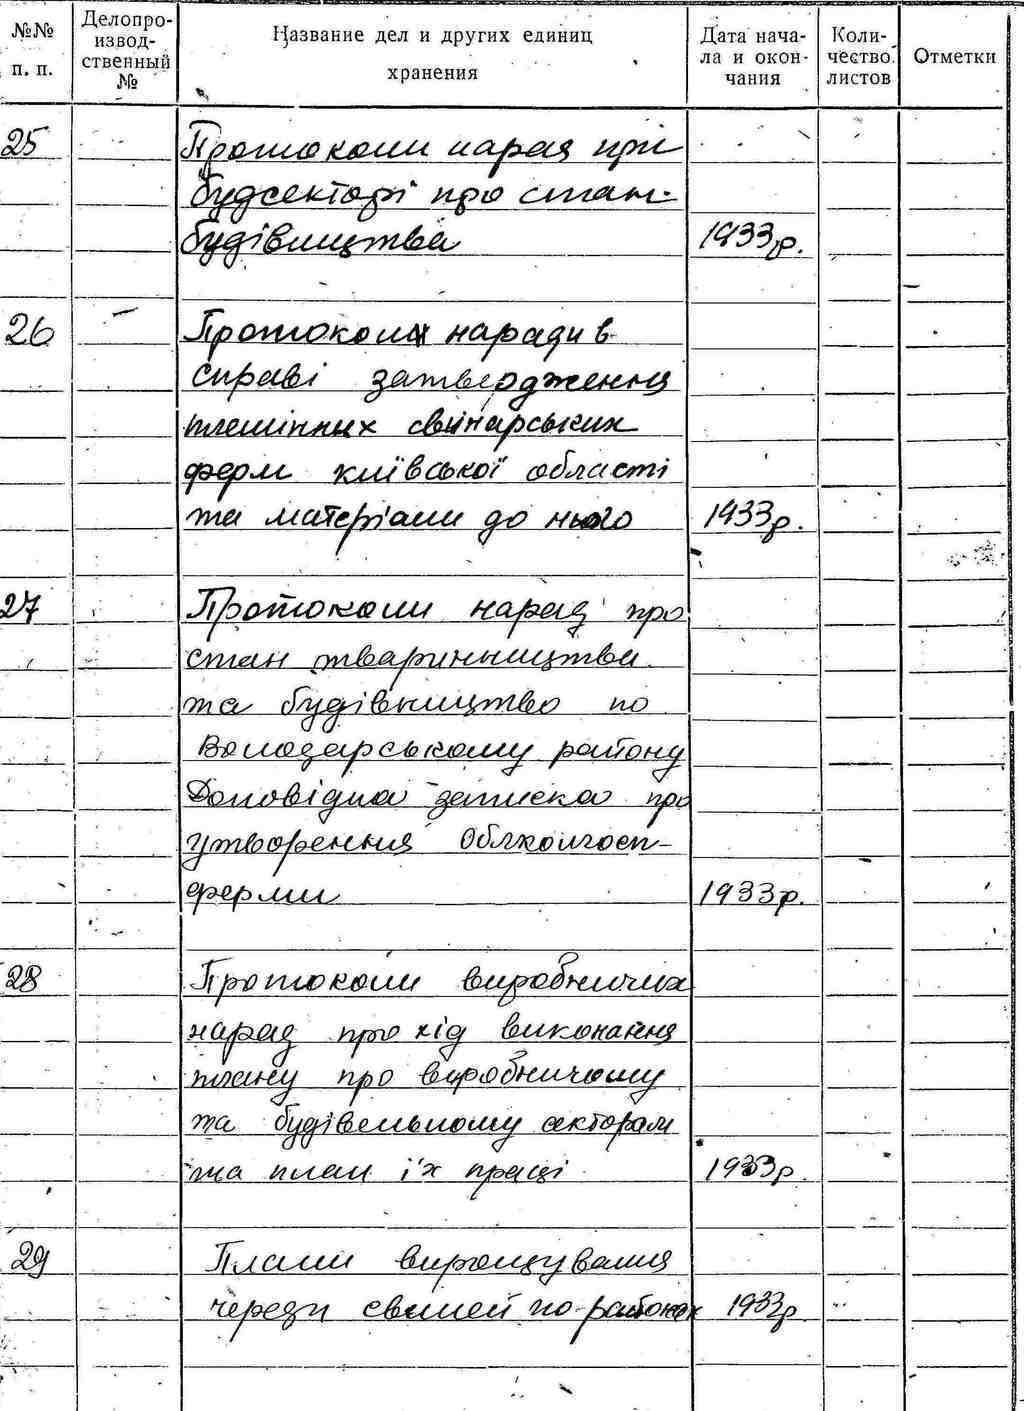 №№ п. п.
Делопроизводственный №
Название дел и других единиц хранения
Дата начала и окончания
Количество листов
Отметки
25 Протоколи нарад при
будсекторі про стан
будівництва 1933 р.
26 Протоколи наради в
справі затвердження
племінних свинарських
ферм київської області
та матеріали до нього 1933 р.
27 Протоколи нарад про
стан тваринництва
та будівництво по
Володарському району
Доповідна записка про
утворення Облколгосп-
ферми 1933 р.
28 Протоколи виробничих
нарад про хід виконання
плану про виробничому
та будівельному секторам
та план їх праці 1933 р
29 Плани вирощування
череди свиней по районах 1933 р